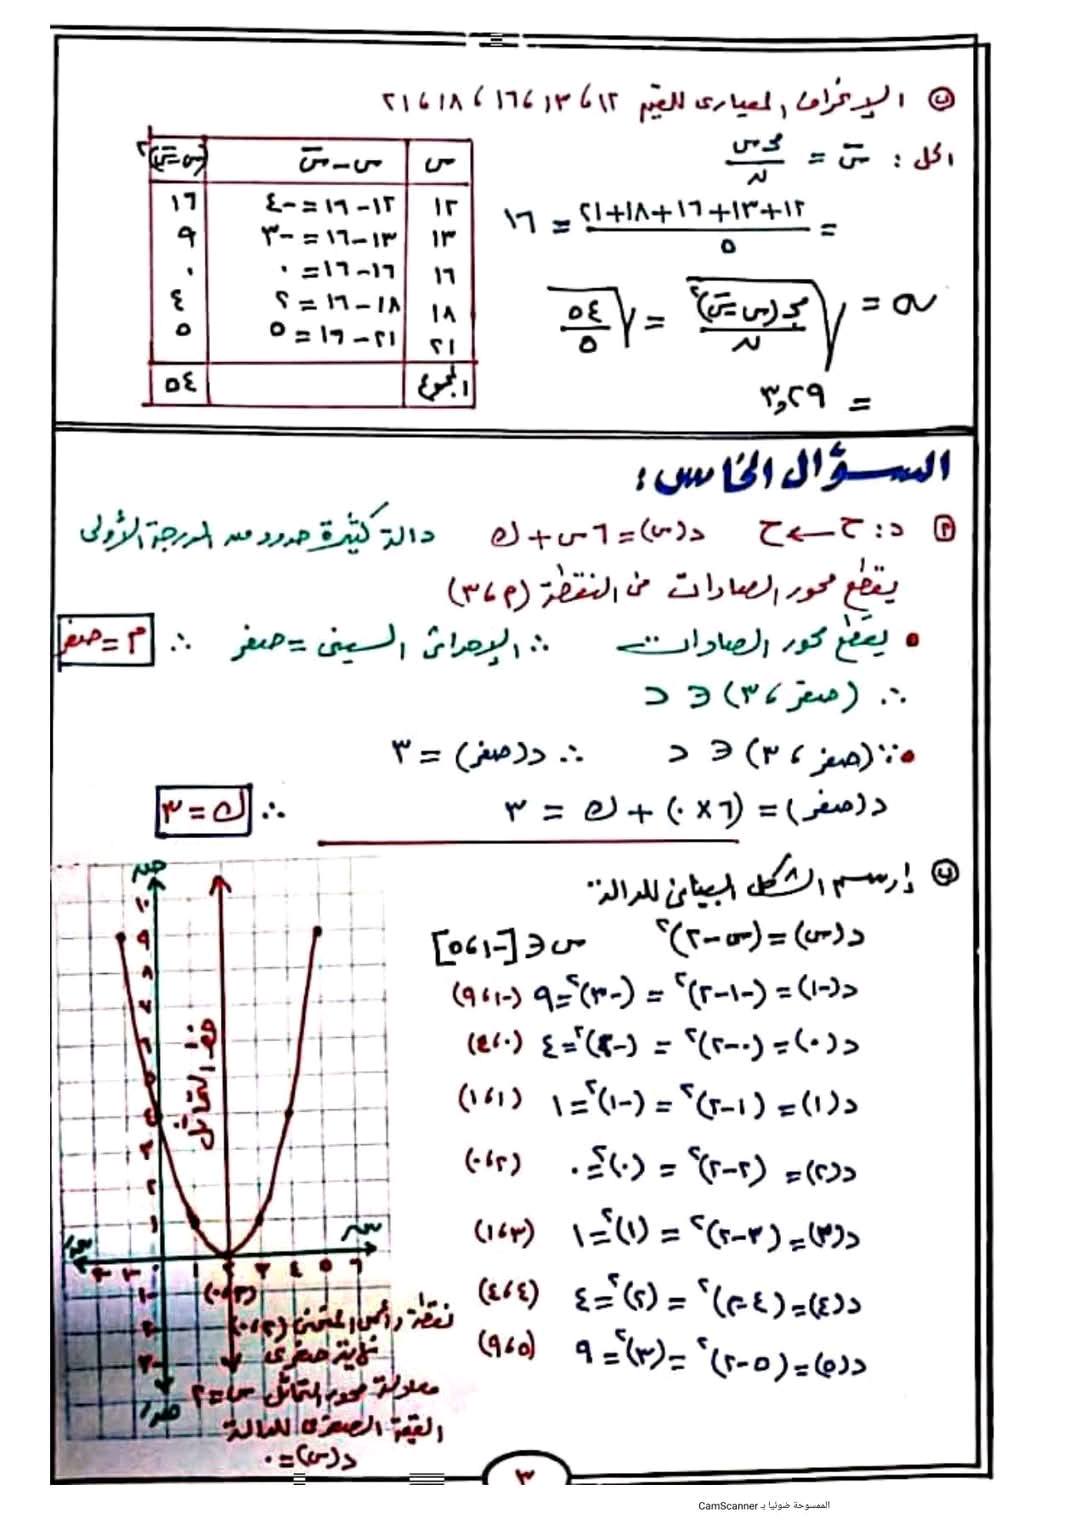 ب الإنحراف المعيارى للقيم ١٢ ، ١٣ ، ١٦ ، ١٨ ، ٢١
الحل : س̅ = مجـ س / ن
= ١٢+١٣+١٦+١٨+٢١ / ٥ = ١٦
σ = √(مجـ (س-س̅)² / ن) = √(٥٤ / ٥)
= ٣,٢٩
س | س-س̅ | (س-س̅)²
١٢ | ١٢-١٦=-٤ | ١٦
١٣ | ١٣-١٦=-٣ | ٩
١٦ | ١٦-١٦=٠ | ٠
١٨ | ١٨-١٦=٢ | ٤
٢١ | ٢١-١٦=٥ | ٥
المجموع | ٥٤
السؤال الخامس :
أ د : ح ← ح د(س)=٦س+ك دالة كثيرة حدود من الدرجة الأولى
يقطع محور الصادات فى النقطة (م ، ٣)
• يقطع محور الصادات ∴ الإحداثى السينى = صفر ∴ م = صفر
∴ (صفر ، ٣) ∈ د
• ∵ (صفر ، ٣) ∈ د ∴ د(صفر) = ٣
د(صفر) = (٦×٠) + ك = ٣ ∴ ك = ٣
ب إرسم الشكل البيانى للدالة
د(س)=(س-٢)² س∈[-١،٥]
د(-١)=(-١-٢)²=(-٣)²=٩ (-١،٩)
د(٠)=(٠-٢)²=(-٢)²=٤ (٠،٤)
د(١)=(١-٢)²=(-١)²=١ (١،١)
د(٢)=(٢-٢)²=(٠)²=٠ (٢،٠)
د(٣)=(٣-٢)²=(١)²=١ (٣،١)
د(٤)=(٤-٢)²=(٢)²=٤ (٤،٤)
د(٥)=(٥-٢)²=(٣)²=٩ (٥،٩)
ص
١٠
٩
٨
٧
٦
٥
٤
٣
٢
١
خط التماثل
س
سَ
-٢ -١ ٠ ١ ٢ ٣ ٤ ٥ ٦
(٢،٠)
-١
-٢
-٣
صَ
نقطة رأس المنحنى (٢،٠)
نهاية صغرى
معادلة محور التماثل س=٢
القيمة الصغرى للدالة
د(س)=٠
٣
الممسوحة ضوئيا بـ CamScanner